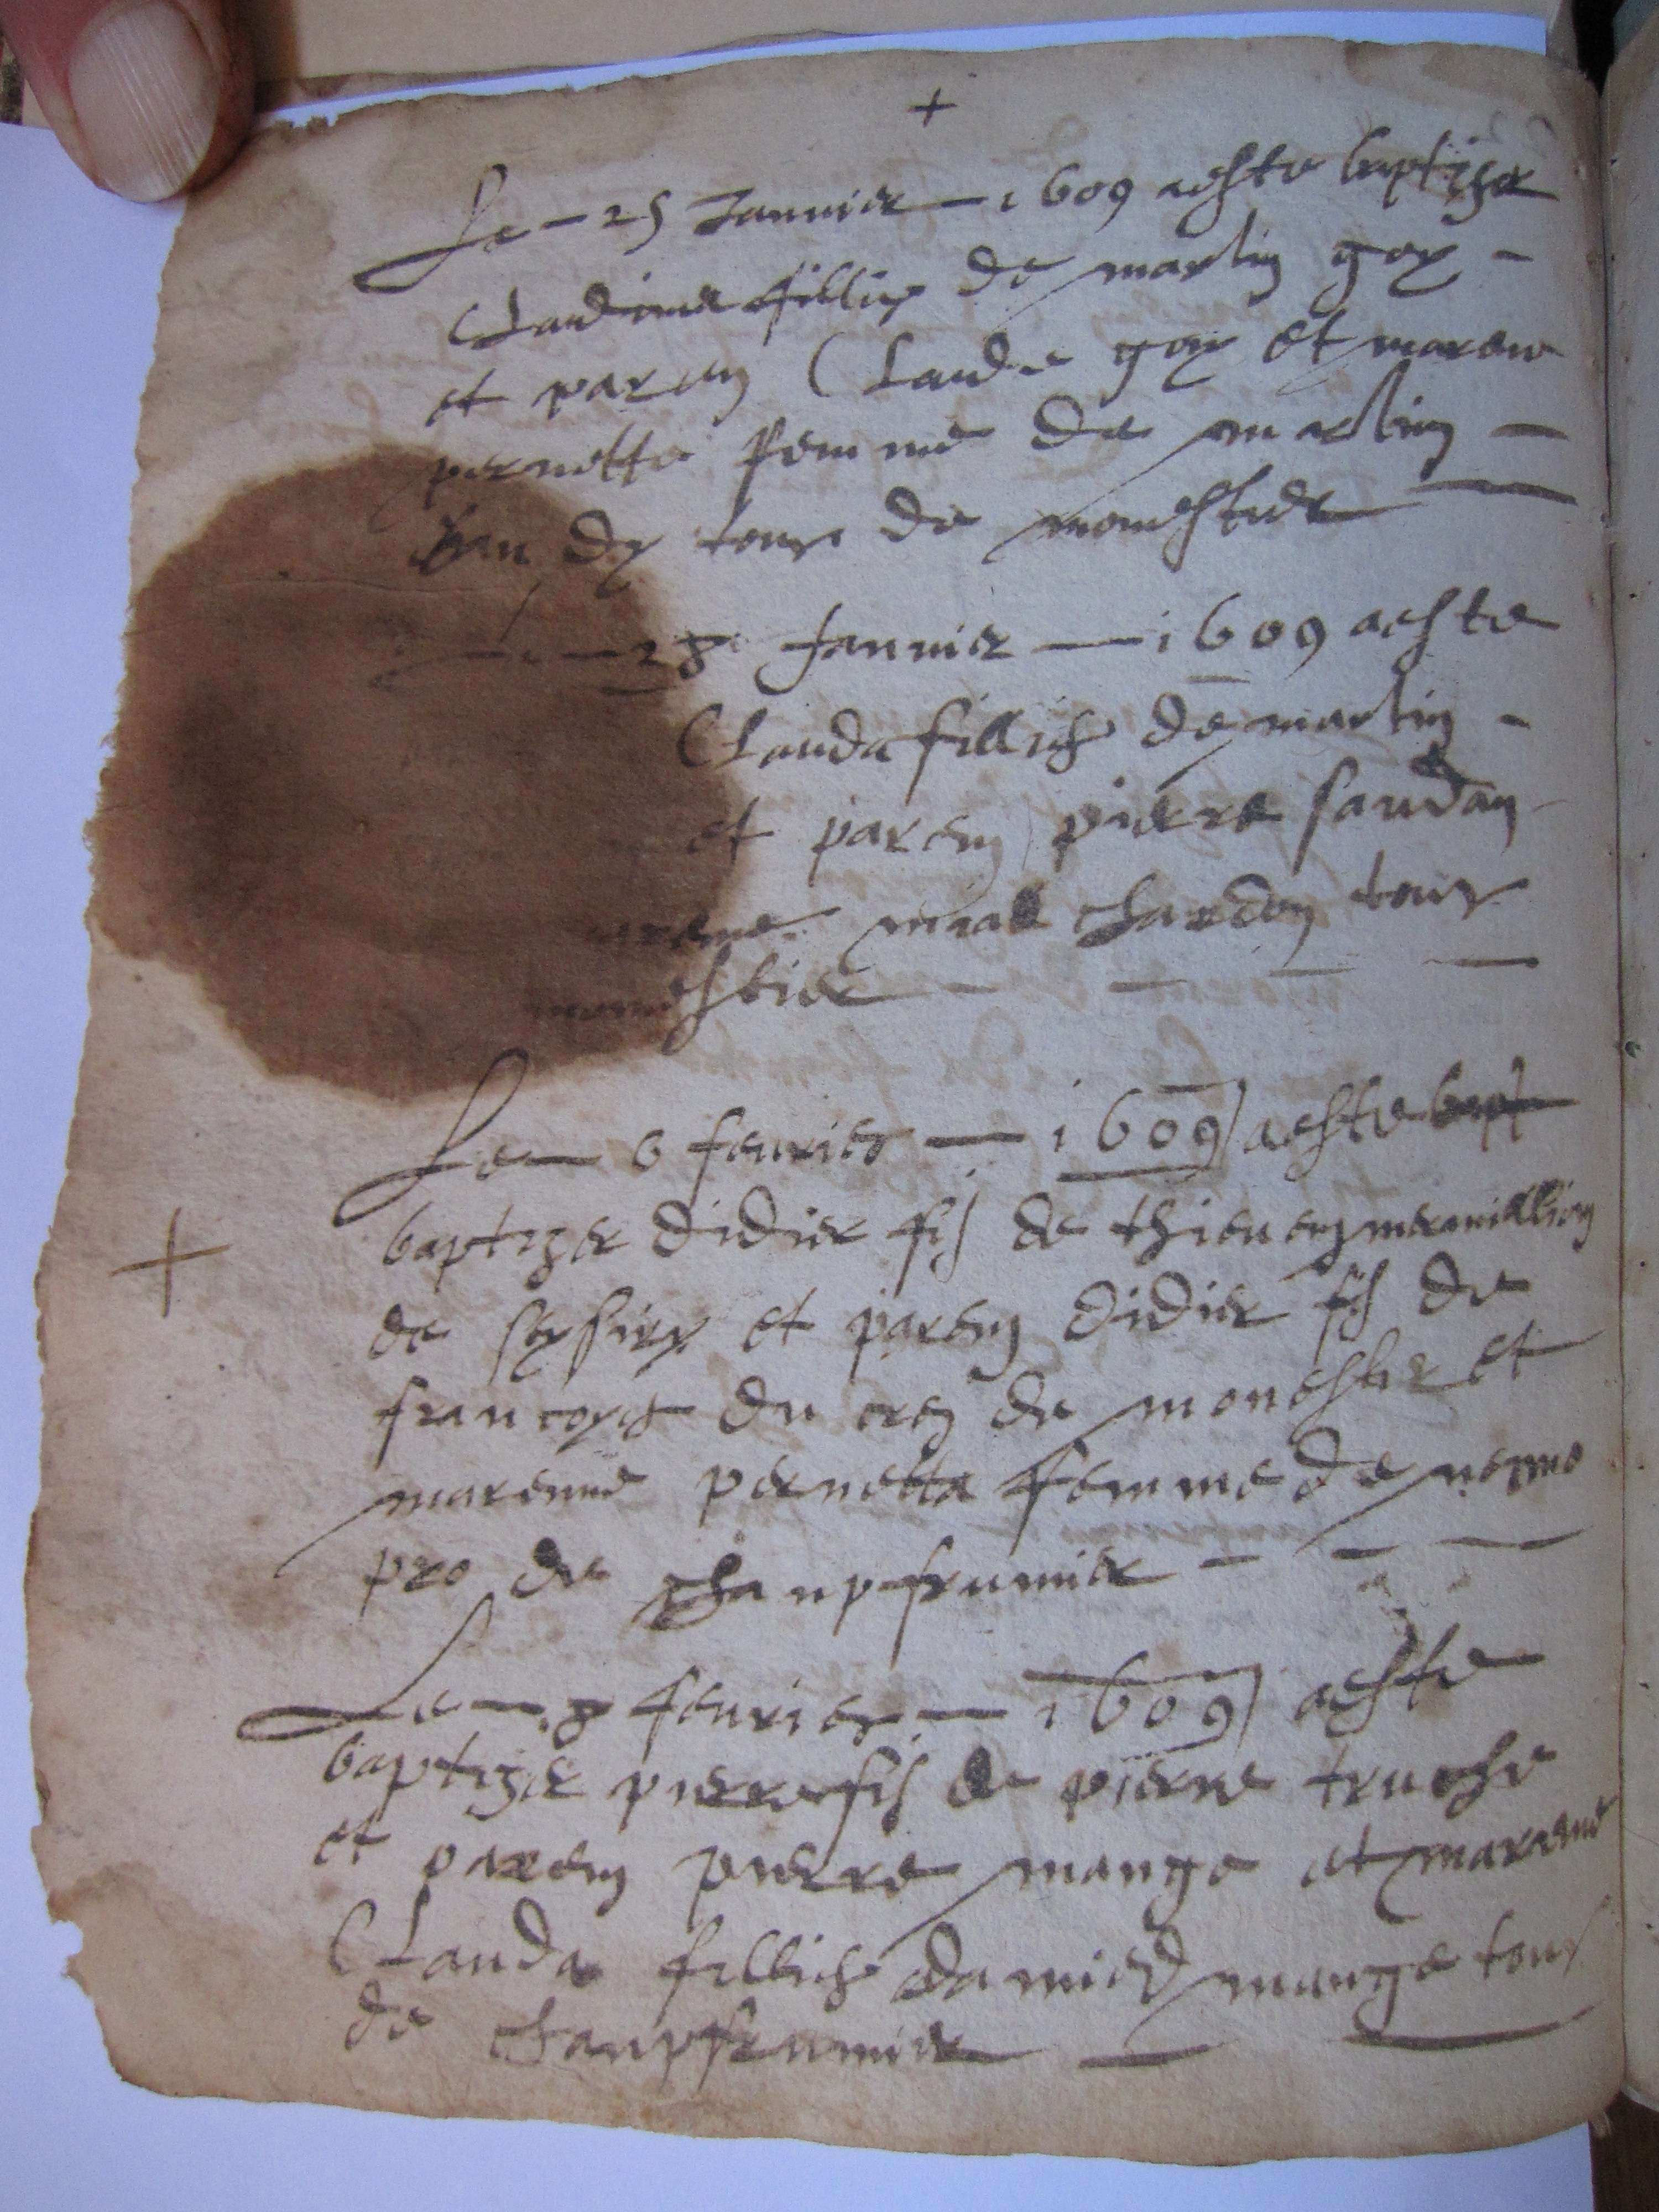 +
Le - 25 Januier - 1609 aeste baptiser
Claudine fillie de martin goy -
et paren Claude goy et marene
pernette femme de martin -
de monestier
28 Januier - 1609 aeste
Clauda fillie de martin -
et paren pierre saudan
marene chardon tous
monestier
Le - 6 feurier - 1609 aeste bapt
baptizer didier fis de thieuen mermillion
de et paren didier fis de
francoys du cres de monestier et
marenne pernetta femme de
pro de chanpfrumier
Le - 8 feurier - 1609 aeste
baptizer pierre fis de pierre truche
et paren pierre mange et marenne
Clauda fillie damied mange tous
de chanpfrumier
+